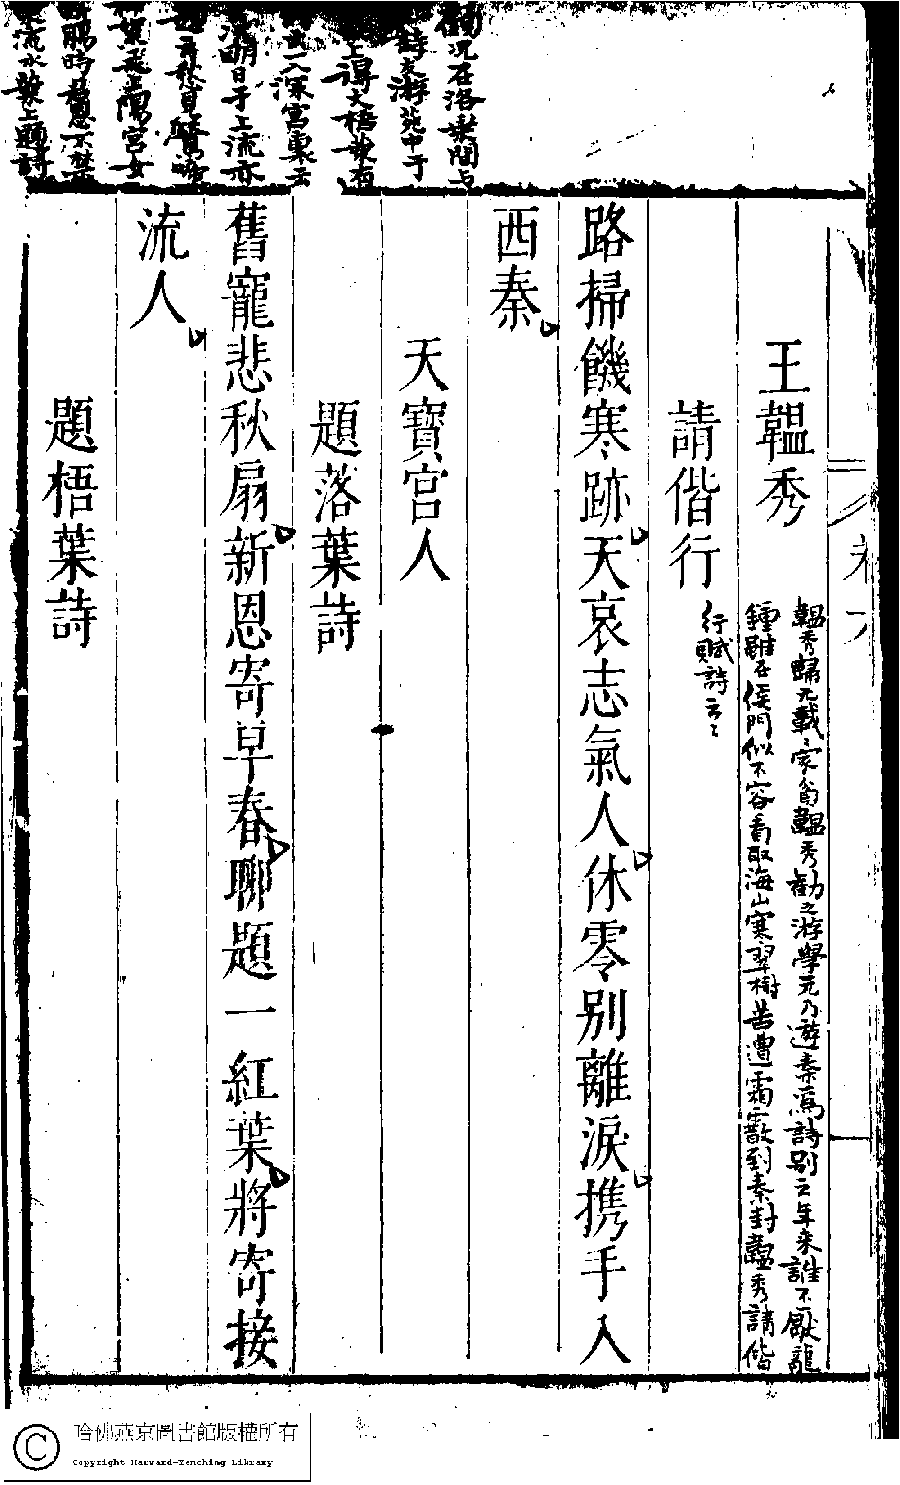 王韞秀
韞秀歸元載家窮韞秀勸之游學元乃遊秦爲詩別云年來誰不厭龍
鍾雖在侯門似不容看取海山寒翠樹苦遭霜霰到秦封韞秀請偕
行賦詩云云
請偕行
路掃饑寒跡天哀志氣人休零別離淚携手入
西秦
天寶宮人
題落葉詩
舊寵悲秋扇新恩寄早春聊題一紅葉將寄接
流人
題梧葉詩
況在洛乘間与
詩友游苑中于
上得大梧葉有
入深宮裏云
明日于上流亦
云愁見鶯啼
葉飛上陽宮女
腸時思不禁
流水葉上題詩
哈佛燕京圖書館版權所有
Copyright Harvard-Yenching Library